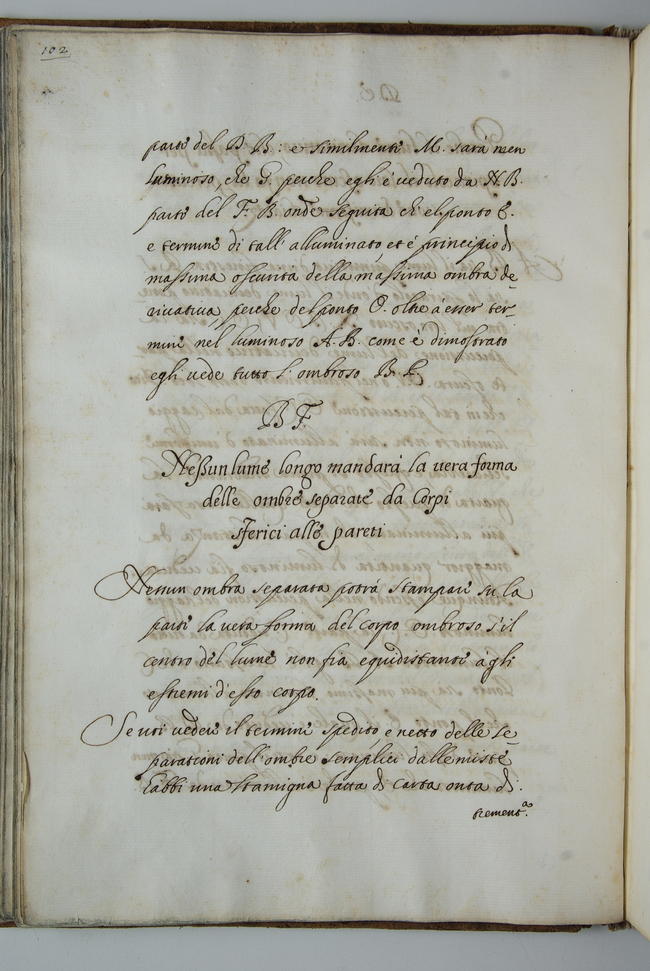 102
parte del D B: e similmente M. sarà men
luminoso, che G. perche egli è veduto da H. B.
parte del F. B. onde seguita ch el ponto
e termine di tall' alluminato, et è principio di
massima oscurità della massima ombra de=
rivativa, perche del ponto O. oltre à esser ter=
mine nel luminoso A. B. come è dimostrato
egli vede tutto l'ombroso
B F.
Nessun lume longo mandarà la vera forma
delle ombre separate da Corpi
sferici alle pareti
Nessun ombra separata potrà stampare su la
parte la vera forma del corpo ombroso s'il
centro del lume non fia equidistante à gli
estremi d'esso corpo.
Se voi vedere il termine spedito, e netto delle se=
parationi dell'ombre semplici dalle miste
habbi una stamigna fatta di carta onta di